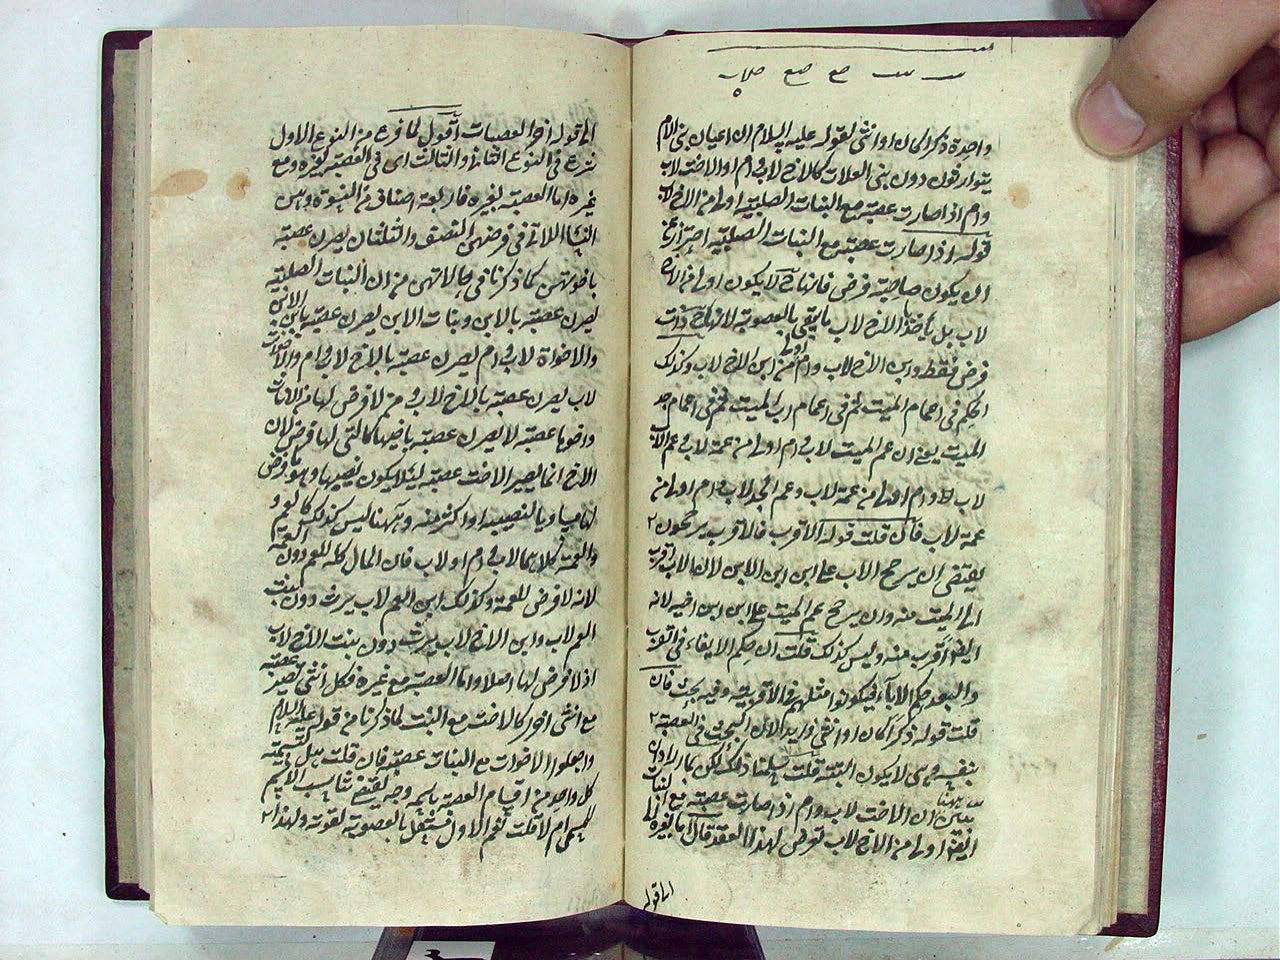 واحدة ذكرا كان او انثى لقوله عليه السلام ان اعيان بنى الام
يتوارثون دون بنى العلات كالاخ لاب وام او الاخت لاب
وام اذا صارت عصبة مع البنات الصلبية اولى من الاخ لاب
قوله اذا صارت عصبة مع البنات الصلبية احتراز عن
ان يكون صاحبة فرض فانها ح لا يكون اولى من الاخ
لاب بل يأخذ الاخ لاب ما يبقى بالعصوبة لانها ح ذات
فرض فقط وابن الاخ لاب وام اولى من ابن الاخ لاب وكذلك
الحكم فى اعمام الميت ثم فى اعمام اب الميت ثم فى اعمام جد
الميت يعنى ان عم الميت لاب وام اولى من عمه لاب وعم الاب
لاب وام اولى من عمه لاب وعم الجد لاب وام اولى من
عمه لاب فان قلت قوله الاقرب فالاقرب يرجحون
يقتضى ان يرجح الاب على ابن ابن الابن لان الاب اقرب
الى الميت منه وان يرجح عم الميت على ابن ابن اخيه لانه
ايضا اقرب منه وليس كذلك قلت ان حكم الابناء فى القرب
والبعد حكم الاباء فيكونوا مثلهم فى الاقربية وفيه بحث فان
قلت قوله ذكرا كان او انثى لان البحث فى العصبة
بنفسه وهى لا يكون البتة قلت سلمنا ذلك لكن لما اراد ان
يبين ههنا ان الاخت لاب وام اذا صارت عصبة مع البنات
ايضا اولى من الاخ لاب تعرض لهذا العقد قال اما بغيره
الى قوله
الى قوله اخر العصبات اقول لما فرغ من النوع الاول
شرع فى النوع الثانى والثالث اى فى العصبة بغيره ومع
غيره اما العصبة بغيره فاربعة اصناف من النسوة وهن
النساء اللاتى فرضهن النصف والثلثان يصرن عصبة
باخوتهن كما ذكرنا فى حالاتهن من ان البنات الصلبية
يصرن عصبة بالابن وبنات الابن يصرن عصبة بابن الابن
والاخوات لاب وام يصرن عصبة بالاخ لاب وام والاخوات
لاب يصرن عصبة بالاخ لاب ومن لا فرض لها من الاناث
واخوها عصبة لا يصرن عصبة باخيها كالتى لها فرض لان
الاخ انما يصير الاخت عصبة لئلا يكون نصيبها وهو فرض
لها مساويا لنصيبه او اكثر منه وههنا ليس كذلك كالعم
والعمة كلاهما لاب وام او لاب فان المال كله للعم دون العمة
لانه لا فرض للعمة وكذلك ابن العم لاب يرث دون بنت
العم لاب وابن الاخ لاب يرث دون بنت الاخ لاب
اذ لا فرض لها اصلا واما العصبة مع غيره فكل انثى تصير عصبة
مع انثى اخرى كالاخت مع البنت لما ذكرنا من قوله عليه السلام
واجعلوا الاخوات مع البنات عصبة فان قلت هل لتسمية
كل واحد من اقسام العصبة باسمه وجه يقتضى تناسب الاسم
للمسمى ام لا قلت نعم الاول مستقل بالعصوبة لقوته ولهذا